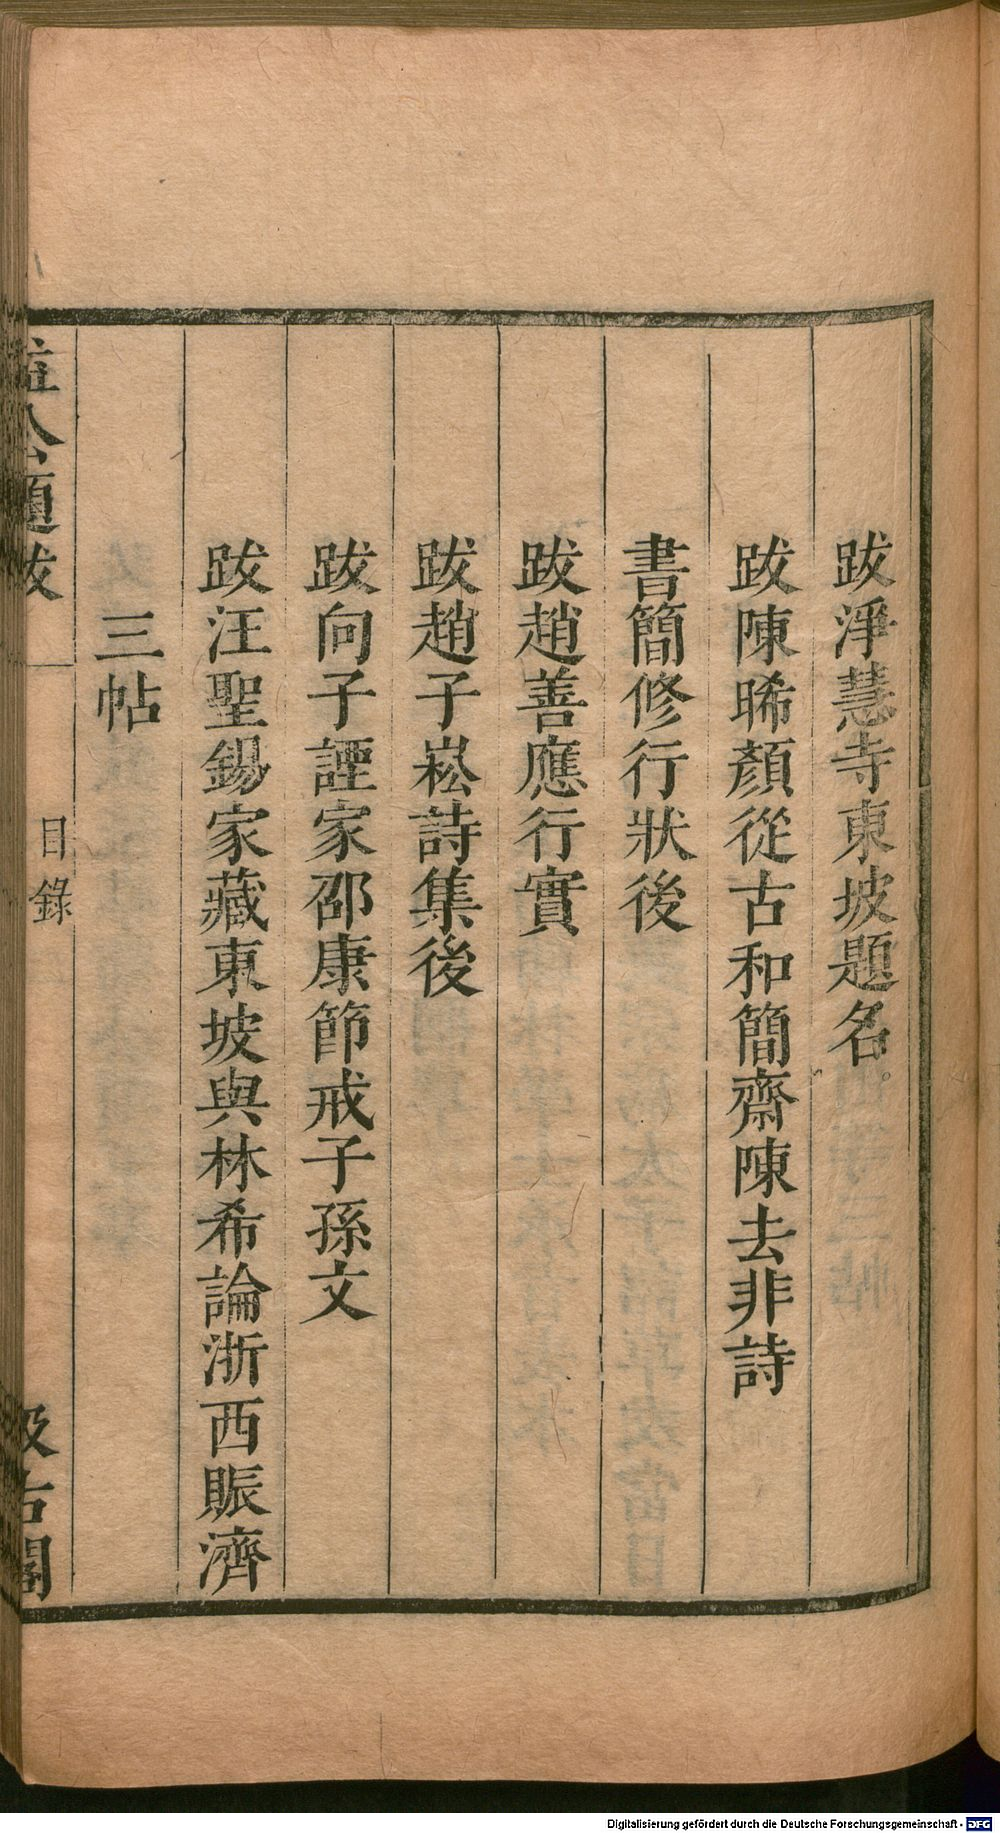 跋淨慧寺東坡題名
跋陳晞顏從古和簡齋陳去非詩
書簡修行狀後
跋趙善應行實
跋趙子崧詩集後
跋向子諲家邵康節戒子孫文
跋汪聖錫家藏東坡與林希論浙西賑濟
三帖
益公題跋
目錄
汲古閣
Digitalisierung gefördert durch die Deutsche Forschungsgemeinschaft - DFG